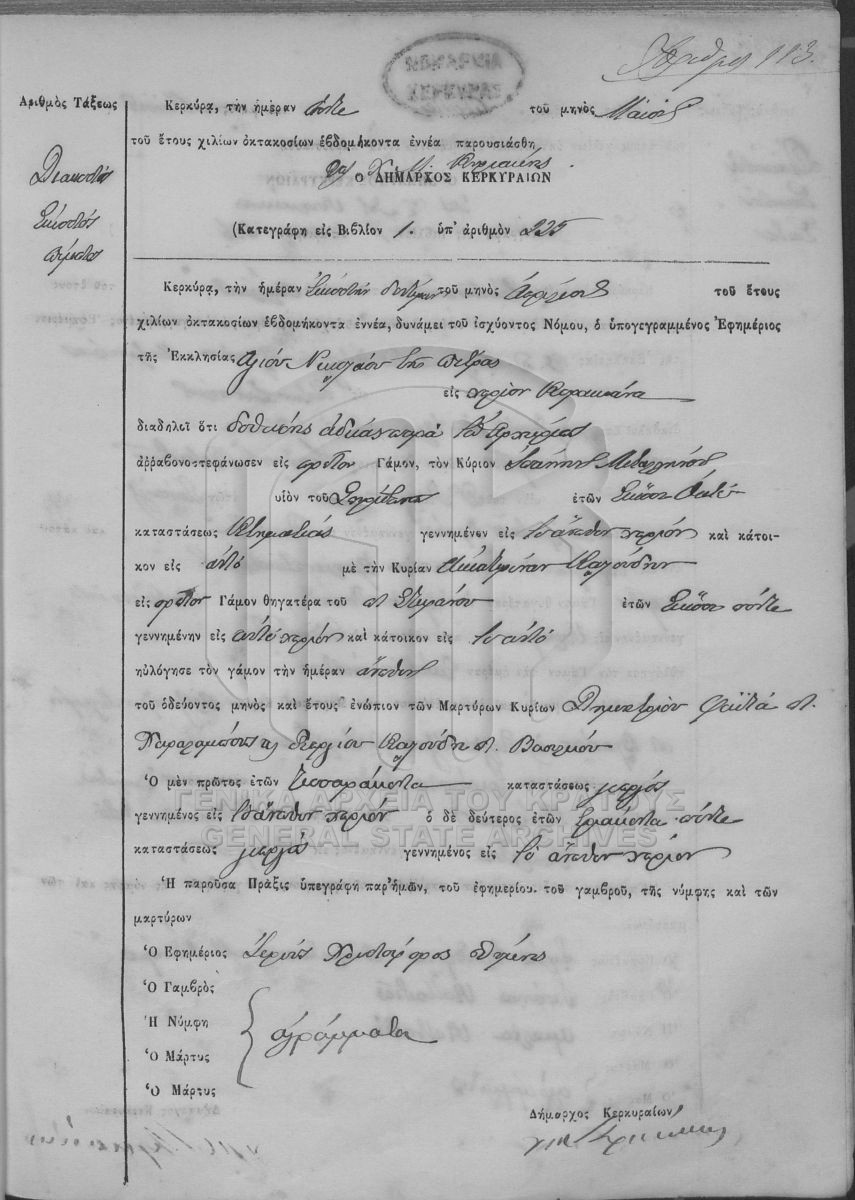 Ἀριθμὸς 113.
ΔΗΜΑΡΧΙΑ ΚΕΡΚΥΡΑΣ
Ἀριθμὸς Τάξεως
Διακοσιοστὸς
Εἰκοστὸς
πέμπτος
Κερκύρᾳ, τὴν ἡμέραν τοῦ μηνὸς Μαΐου
τοῦ ἔτους χιλίων ὀκτακοσίων ἑβδομήκοντα ἐννέα παρουσιάσθη
Ὁ ΔΗΜΑΡΧΟΣ ΚΕΡΚΥΡΑΙΩΝ
(Κατεγράφη εἰς Βιβλίον 1. ὑπ' ἀριθμὸν 225
Κερκύρᾳ, τὴν ἡμέραν Εἰκοστὴν τοῦ μηνὸς Ἀπριλίου τοῦ ἔτους
χιλίων ὀκτακοσίων ἑβδομήκοντα ἐννέα, δυνάμει τοῦ ἰσχύοντος Νόμου, ὁ ὑπογεγραμμένος Ἐφημέριος
τῆς Ἐκκλησίας Ἁγίου Νικολάου τῆς Πέτρας
εἰς χωρίον
διαδηλεῖ ὅτι δοθείσης ἀδείας παρὰ
ἀῤῥαβονοστεφάνωσεν εἰς πρῶτον Γάμον, τὸν Κύριον Ἰωάννην
υἱὸν τοῦ Σπυρίδωνος ἐτῶν Εἴκοσι
καταστάσεως Κτηματίας γεννημένον εἰς τὸ ἄνωθεν χωρίον καὶ κάτοι-
κον εἰς αὐτό μὲ τὴν Κυρίαν Αἰκατερίναν
εἰς πρῶτον Γάμον θηγατέρα τοῦ π. Στεφάνου ἐτῶν Εἴκοσι πέντε
γεννημένην εἰς αὐτό χωρίον καὶ κάτοικον εἰς τὸ αὐτό
ηὐλόγησε τὸν γάμον τὴν ἡμέραν ἄνωθεν
τοῦ ὁδεύοντος μηνὸς καὶ ἔτους ἐνώπιον τῶν Μαρτύρων Κυρίων Δημητρίου Φαϊτά π.
Χαραλάμπους καὶ Γεωργίου π. Βασιλείου
Ὁ μὲν πρῶτος ἐτῶν Τεσσαράκοντα καταστάσεως γεωργός
γεννημένος εἰς τὸ ἄνωθεν χωρίον ὁ δὲ δεύτερος ἐτῶν τριάκοντα πέντε
καταστάσεως γεωργός γεννημένος εἰς τὸ ἄνωθεν χωρίον
Ἡ παροῦσα Πρᾶξις ὑπεγράφη παρ' ἡμῶν, τοῦ ἐφημερίου. τοῦ γαμβροῦ, τῆς νύμφης καὶ τῶν
μαρτύρων
Ὁ Ἐφημέριος Ἱερεὺς Χριστόφορος
Ὁ Γαμβρὸς
Ἡ Νύμφη
ἀγράμματοι
Ὁ Μάρτυς
Ὁ Μάρτυς
Δήμαρχος Κερκυραίων
ΓΕΝΙΚΑ ΑΡΧΕΙΑ ΤΟΥ ΚΡΑΤΟΥΣ
GENERAL STATE ARCHIVES